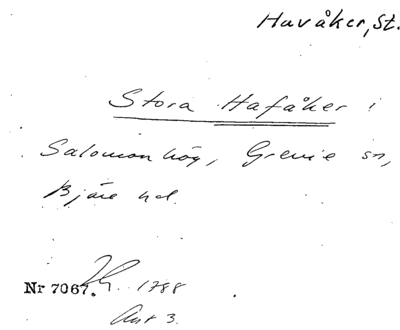 Havåker, St.
Stora Hafåker i
Salomonhög, Grevie sn,
Bjäre hd.
Nr 7067. 1788
Akt 3.